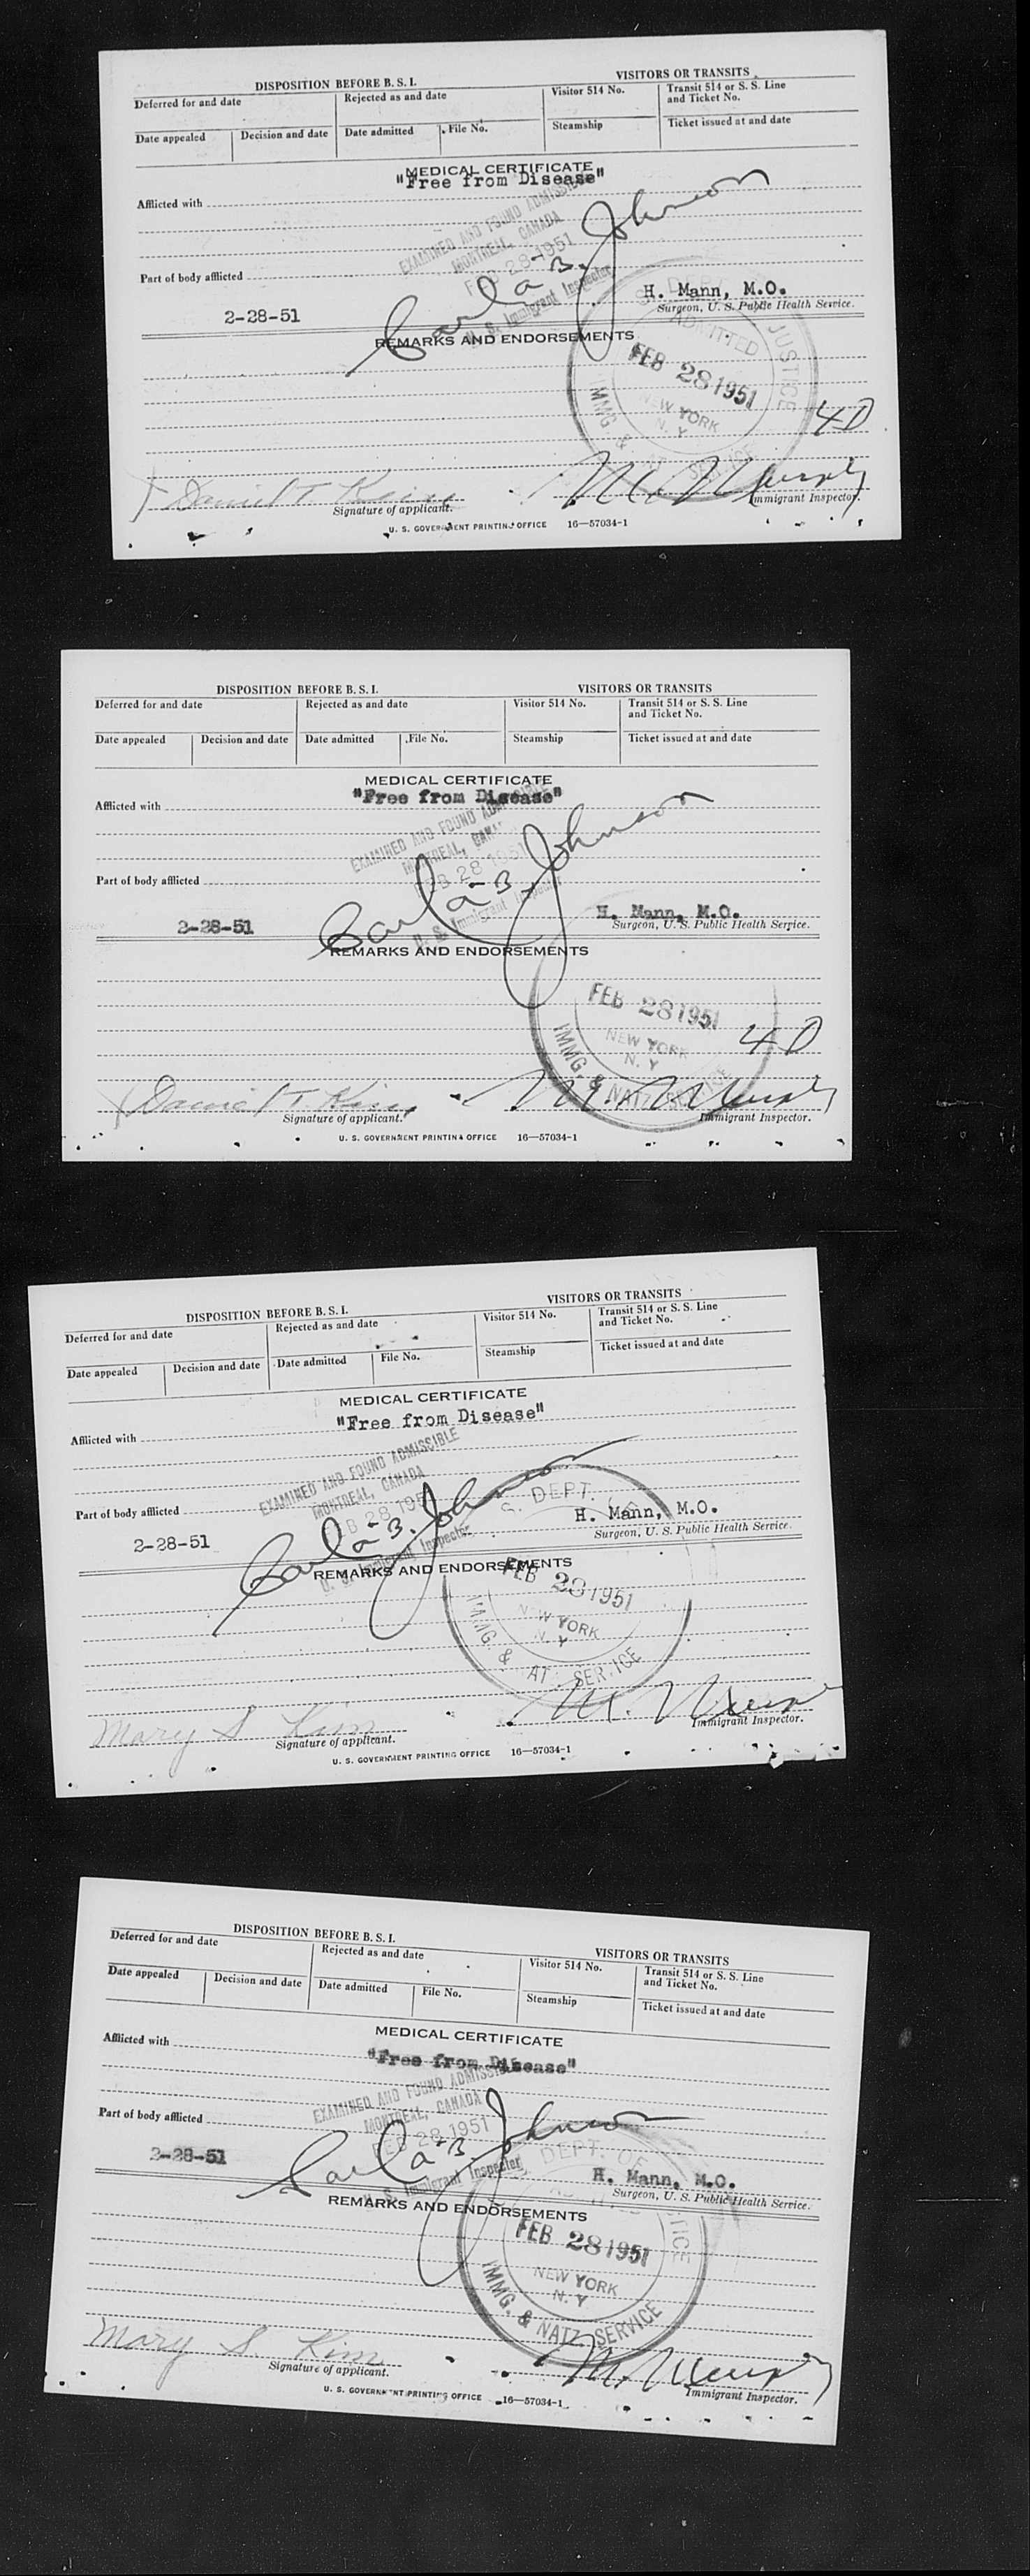 DISPOSITION BEFORE B. S. I.
VISITORS OR TRANSITS
Deferred for and date
Rejected as and date
Visitor 514 No.
Transit 514 or S. S. Line
and Ticket No.
Date appealed
Decision and date
Date admitted
File No.
Steamship
Ticket issued at and date
MEDICAL CERTIFICATE
"Free from Disease"
Afflicted with
EXAMINED AND FOUND ADMISSIBLE
MONTREAL, CANADA
FEB 28 1951
U. S. Immigrant Inspector
Carl B. Johnson
Part of body afflicted
H. Mann, M.O.
Surgeon, U. S. Public Health Service.
2-28-51
REMARKS AND ENDORSEMENTS
DEPT JUSTICE
ADMITTED
FEB 28 1951
NEW YORK
N. Y
IMMG & SERVICE
4D
Daniel T Kim
Signature of applicant.
Immigrant Inspector.
U. S. GOVERNMENT PRINTING OFFICE 16—57034-1
DISPOSITION BEFORE B. S. I.
VISITORS OR TRANSITS
Deferred for and date
Rejected as and date
Visitor 514 No.
Transit 514 or S. S. Line
and Ticket No.
Date appealed
Decision and date
Date admitted
File No.
Steamship
Ticket issued at and date
MEDICAL CERTIFICATE
"Free from Disease"
Afflicted with
EXAMINED AND FOUND
MONTREAL,
FEB 28 1951
U. S. Immigrant Inspector
Carl B. Johnson
Part of body afflicted
H. Mann, M.O.
Surgeon, U. S. Public Health Service.
2-28-51
REMARKS AND ENDORSEMENTS
FEB 28 1951
NEW YORK
N. Y
IMMG. & NATZ
4D
Daniel T Kim
Signature of applicant.
Immigrant Inspector.
U. S. GOVERNMENT PRINTING OFFICE 16—57034-1
DISPOSITION BEFORE B. S. I.
VISITORS OR TRANSITS
Deferred for and date
Rejected as and date
Visitor 514 No.
Transit 514 or S. S. Line
and Ticket No.
Date appealed
Decision and date
Date admitted
File No.
Steamship
Ticket issued at and date
MEDICAL CERTIFICATE
"Free from Disease"
Afflicted with
EXAMINED AND FOUND ADMISSIBLE
MONTREAL, CANADA
FEB 28 1951
U. S. Immigrant Inspector
Carl B. Johnson
Part of body afflicted
S. DEPT.
H. Mann, M.O.
Surgeon, U. S. Public Health Service.
2-28-51
REMARKS AND ENDORSEMENTS
FEB 28 1951
NEW YORK
N. Y
IMMG. & NAT SERVICE
Mary S Kim
Signature of applicant.
Immigrant Inspector.
U. S. GOVERNMENT PRINTING OFFICE 16—57034-1
DISPOSITION BEFORE B. S. I.
VISITORS OR TRANSITS
Deferred for and date
Rejected as and date
Visitor 514 No.
Transit 514 or S. S. Line
and Ticket No.
Date appealed
Decision and date
Date admitted
File No.
Steamship
Ticket issued at and date
MEDICAL CERTIFICATE
"Free from Disease"
Afflicted with
EXAMINED AND FOUND ADMISSIBLE
MONTREAL, CANADA
FEB 28 1951
U. S. Immigrant Inspector
Carl B. Johnson
Part of body afflicted
DEPT. OF
H. Mann, M.O.
Surgeon, U. S. Public Health Service.
2-28-51
REMARKS AND ENDORSEMENTS
FEB 28 1951
NEW YORK
N. Y
IMMG. & NATZ SERVICE
Mary S. Kim
Signature of applicant.
Immigrant Inspector.
U. S. GOVERNMENT PRINTING OFFICE 16—57034-1